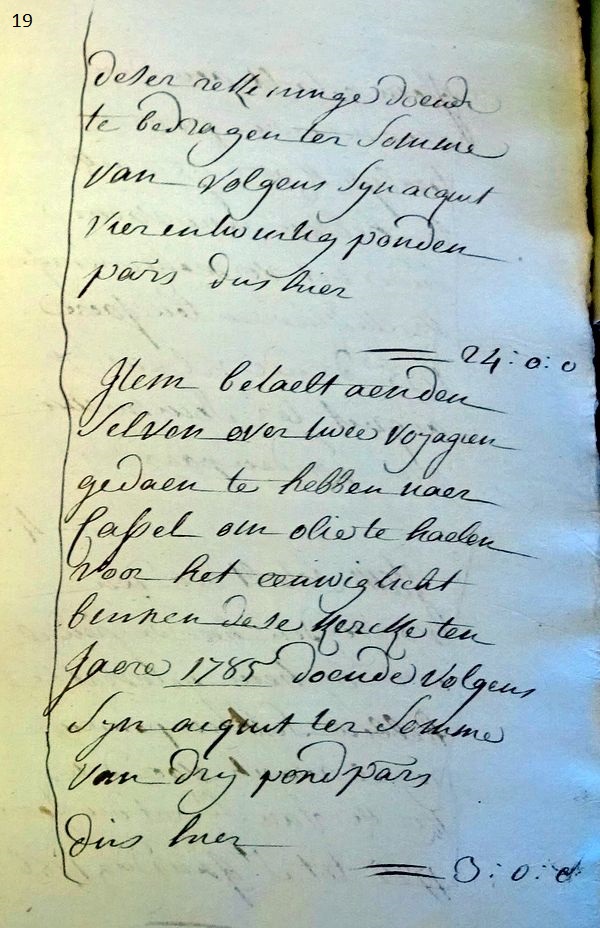 19
deser rekkeninge doende
te bedragen ter Somme
van volgens Syn acquit
vierentwintig ponden
pars dus hier
24 : 0 : 0
Item betaelt aen den
Selven over twee voyagien
gedaen te hebben naer
Cassel om olie te haelen
voor het eeuwig licht
binnen dese Kercke ten
Jaere 1785 doende volgens
Syn acquit ter Somme
van dry pond pars
dus hier
3 : 0 : 0